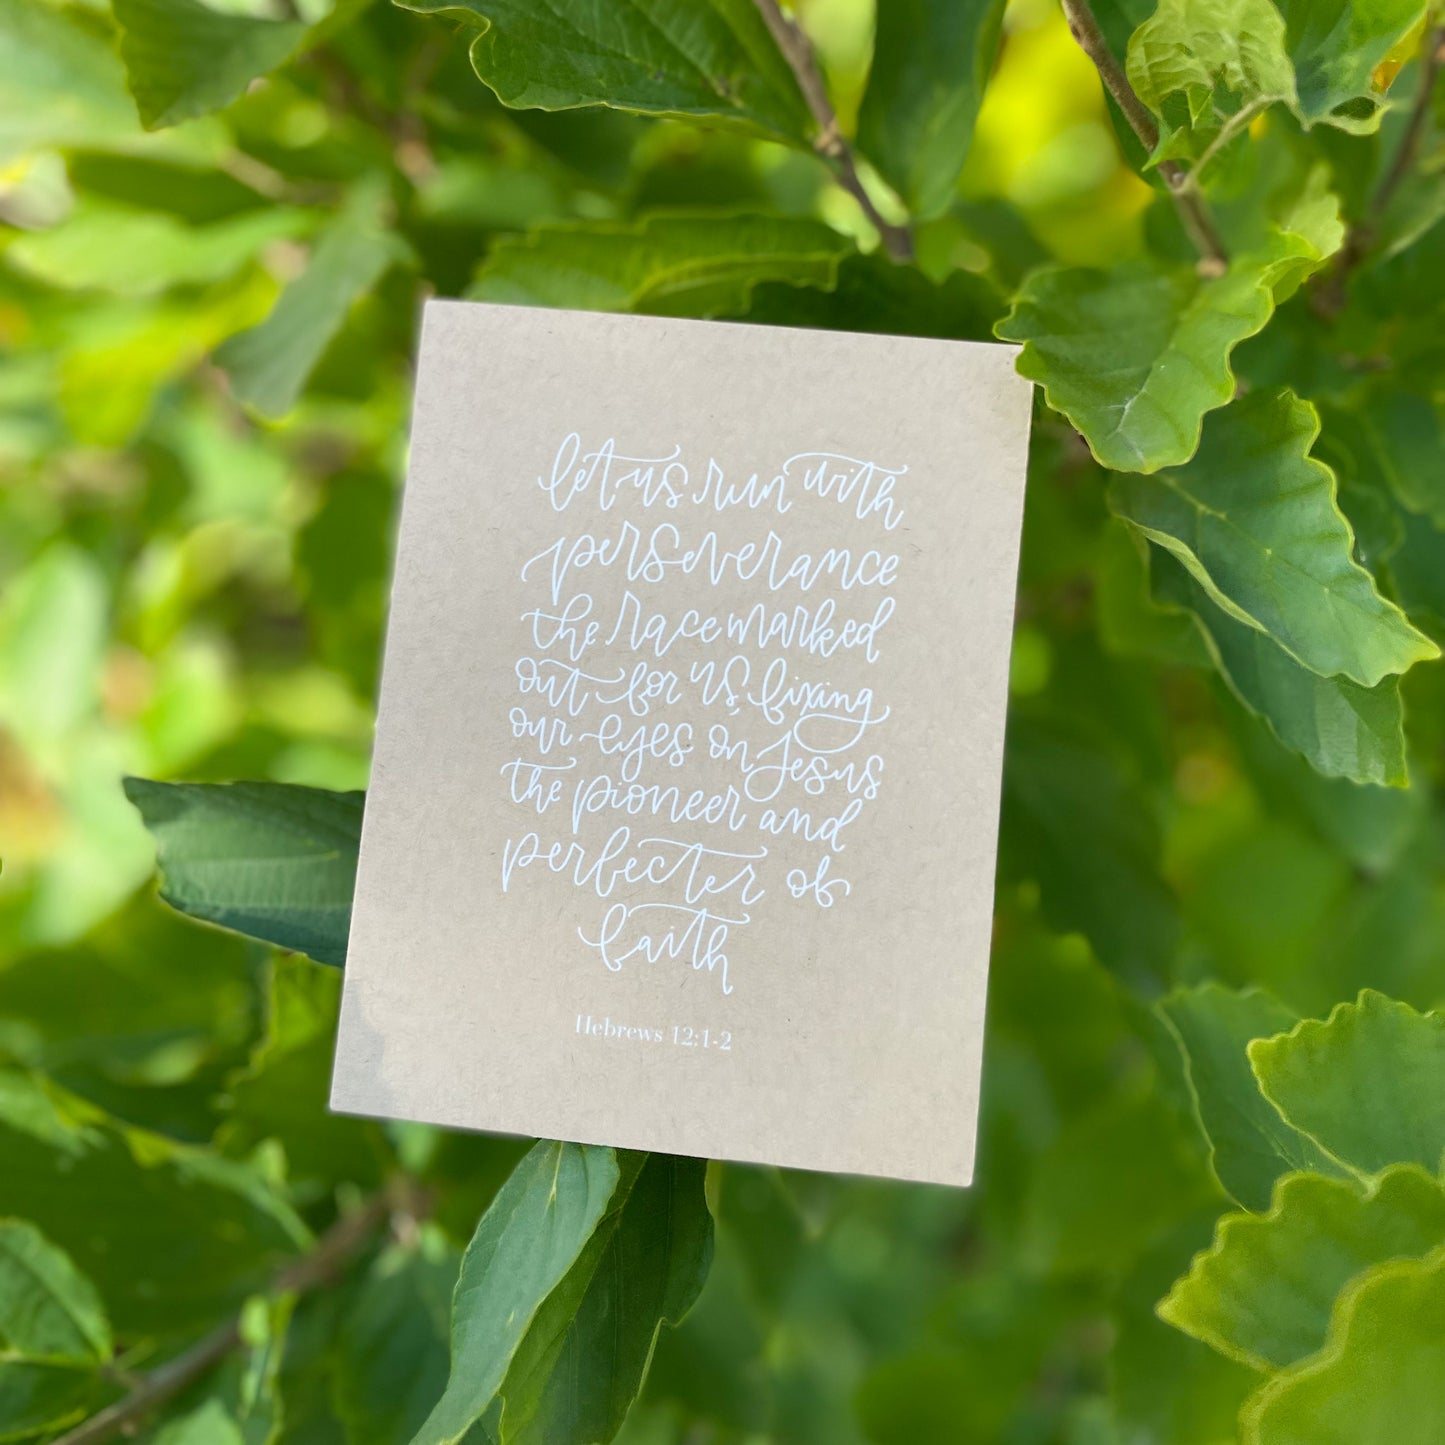 let us run with
perseverance
the race marked
out for us, fixing
our eyes on Jesus
the pioneer and
perfecter of
faith
Hebrews 12:1-2